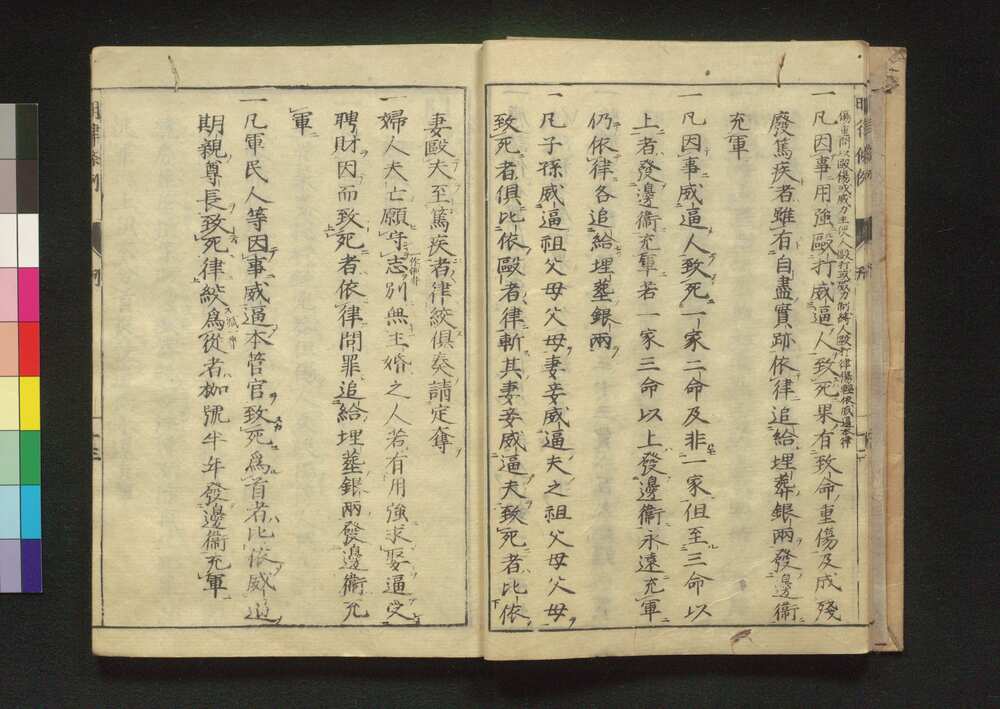 明律條例
刑
一凡因事用強毆打威逼人致死果有致命重傷及成殘
廢篤疾者雖有自盡實跡依律追給埋葬銀兩發邊衛
充軍
一凡因事威逼人致死一家二命及非一家但至三命以
上者發邊衛充軍若一家三命以上發邊衛永遠充軍
仍依律各追給埋葬銀兩
一凡子孫威逼祖父母父母妻妾威逼夫之祖父母父母
致死者俱比依毆者律斬其妻妾威逼夫致死者比依
妻毆夫至篤疾者律絞俱奏請定奪
一婦人夫亡願守志別無主婚之人若有用強求娶逼受
聘財因而致死者依律問罪追給埋葬銀兩發邊衛充
軍
一凡軍民人等因事威逼本管官致死為首者比依威逼
期親尊長致死律絞為從者枷號半年發邊衛充軍
明律條例
刑